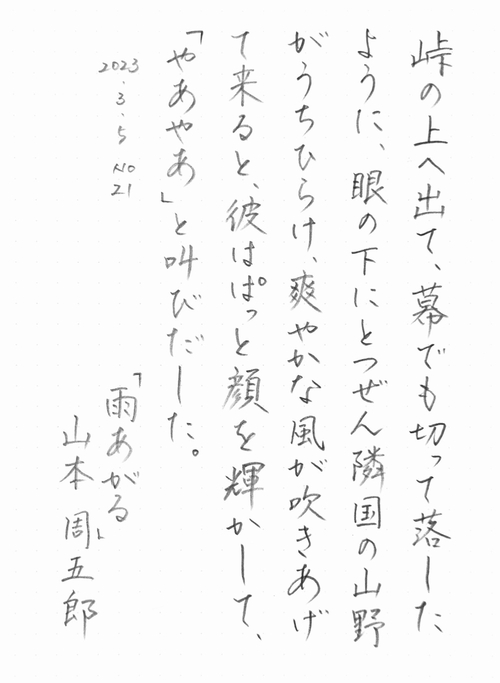 峠の上へ出て、幕でも切って落した
ように、眼の下にとつぜん隣国の山野
がうちひらけ、爽やかな風が吹きあげ
て来ると、彼はぱっと顔を輝かして、
「やあやあ」と叫びだした。
2023.3.5 No 21
「雨あがる」
山本周五郎